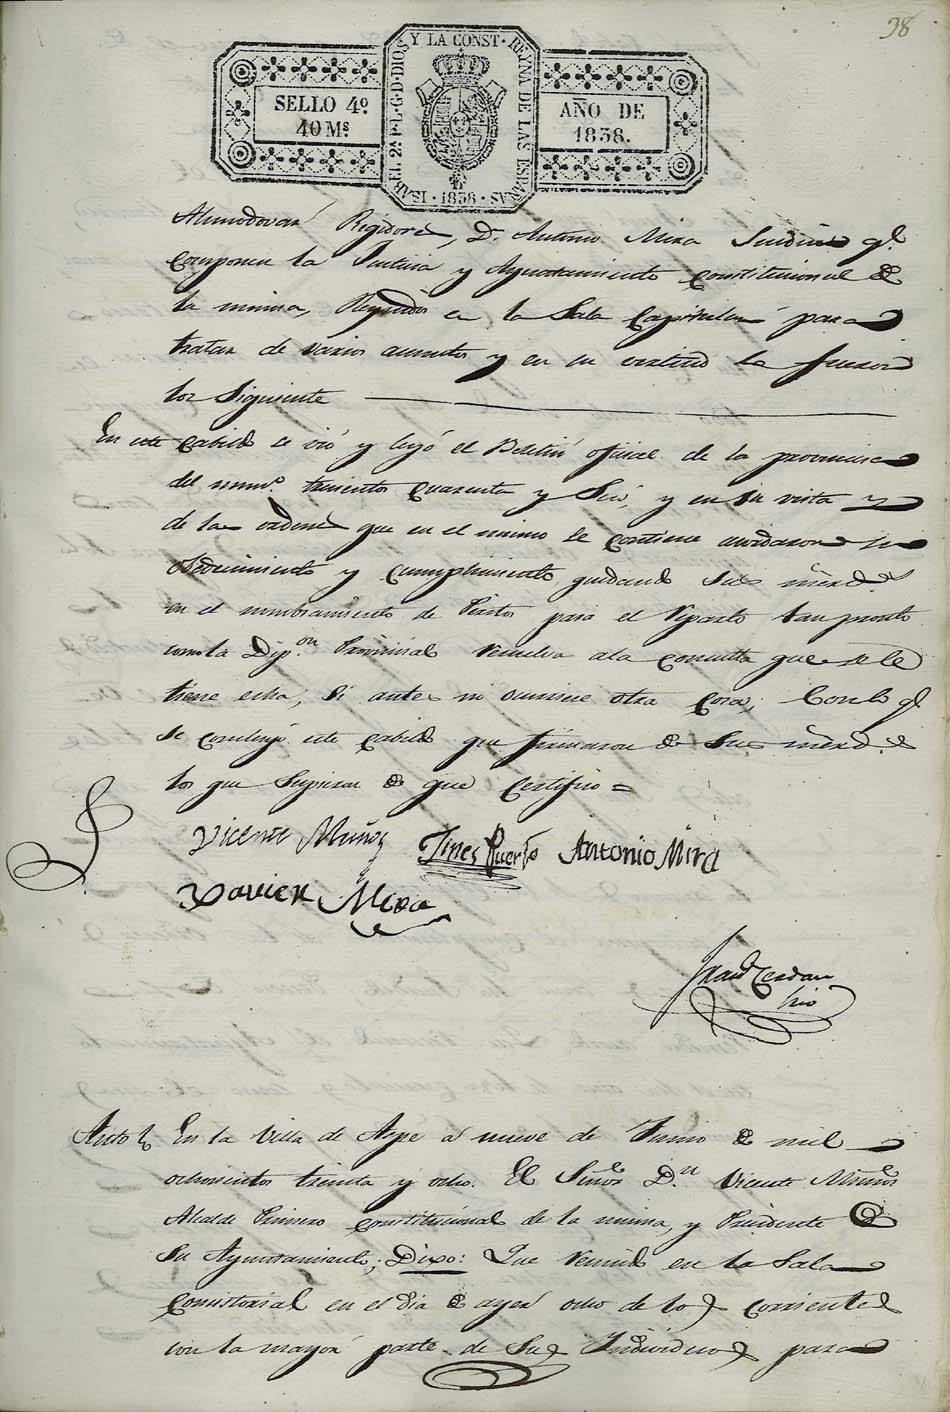 98
SELLO 4º
40 Ms.
ISABEL 2ª P. L. G. D. DIOS Y LA CONST. REYNA DE LAS ESPAÑAS · 1838 ·
AÑO DE
1838.
Almodovar Regidores, D. Antonio Mira Sindico ql.
componen la Justicia y Ayuntamiento constitucional de
la misma, Reunidos en la Sala Capitular para
tratar de varios asuntos y en su virtud lo fueron
los Siguiente
En este cabildo se vió y leyó el Boletin oficial de la provincia
del num.º trescientos cuarenta y Seis, y en su vista y
de las ordenes que en el mismo se contiene acordaron su
obedecimiento y cumplimiento quedando Sus mercd.s
en el nombramiento de Peritos para el Reparto tan pronto
como la Dip.on Provincial resuelva ala consulta que se le
tiene echa, si antes no ocurriese otra cosa; Con lo ql
se concluyó este cabildo que firmaron de Sus mercd.s
los que Supieron de que Certifico =
Vicente Muñoz Gines Puerto Antonio Mira
Xavier Mira
Cerdan
Srio
Auto En la Villa de Aspe á nueve de Junio de mil
ochocientos treinta y ocho. El Señor D.n Vicente Muñoz
Alcalde Primero constitucional de la misma, y Presidente de
Su Ayuntamiento; Dixo: Que reunido en la Sala
Consistorial en el dia de ayer ocho de los corrientes
con la mayor parte de Sus Individuos para